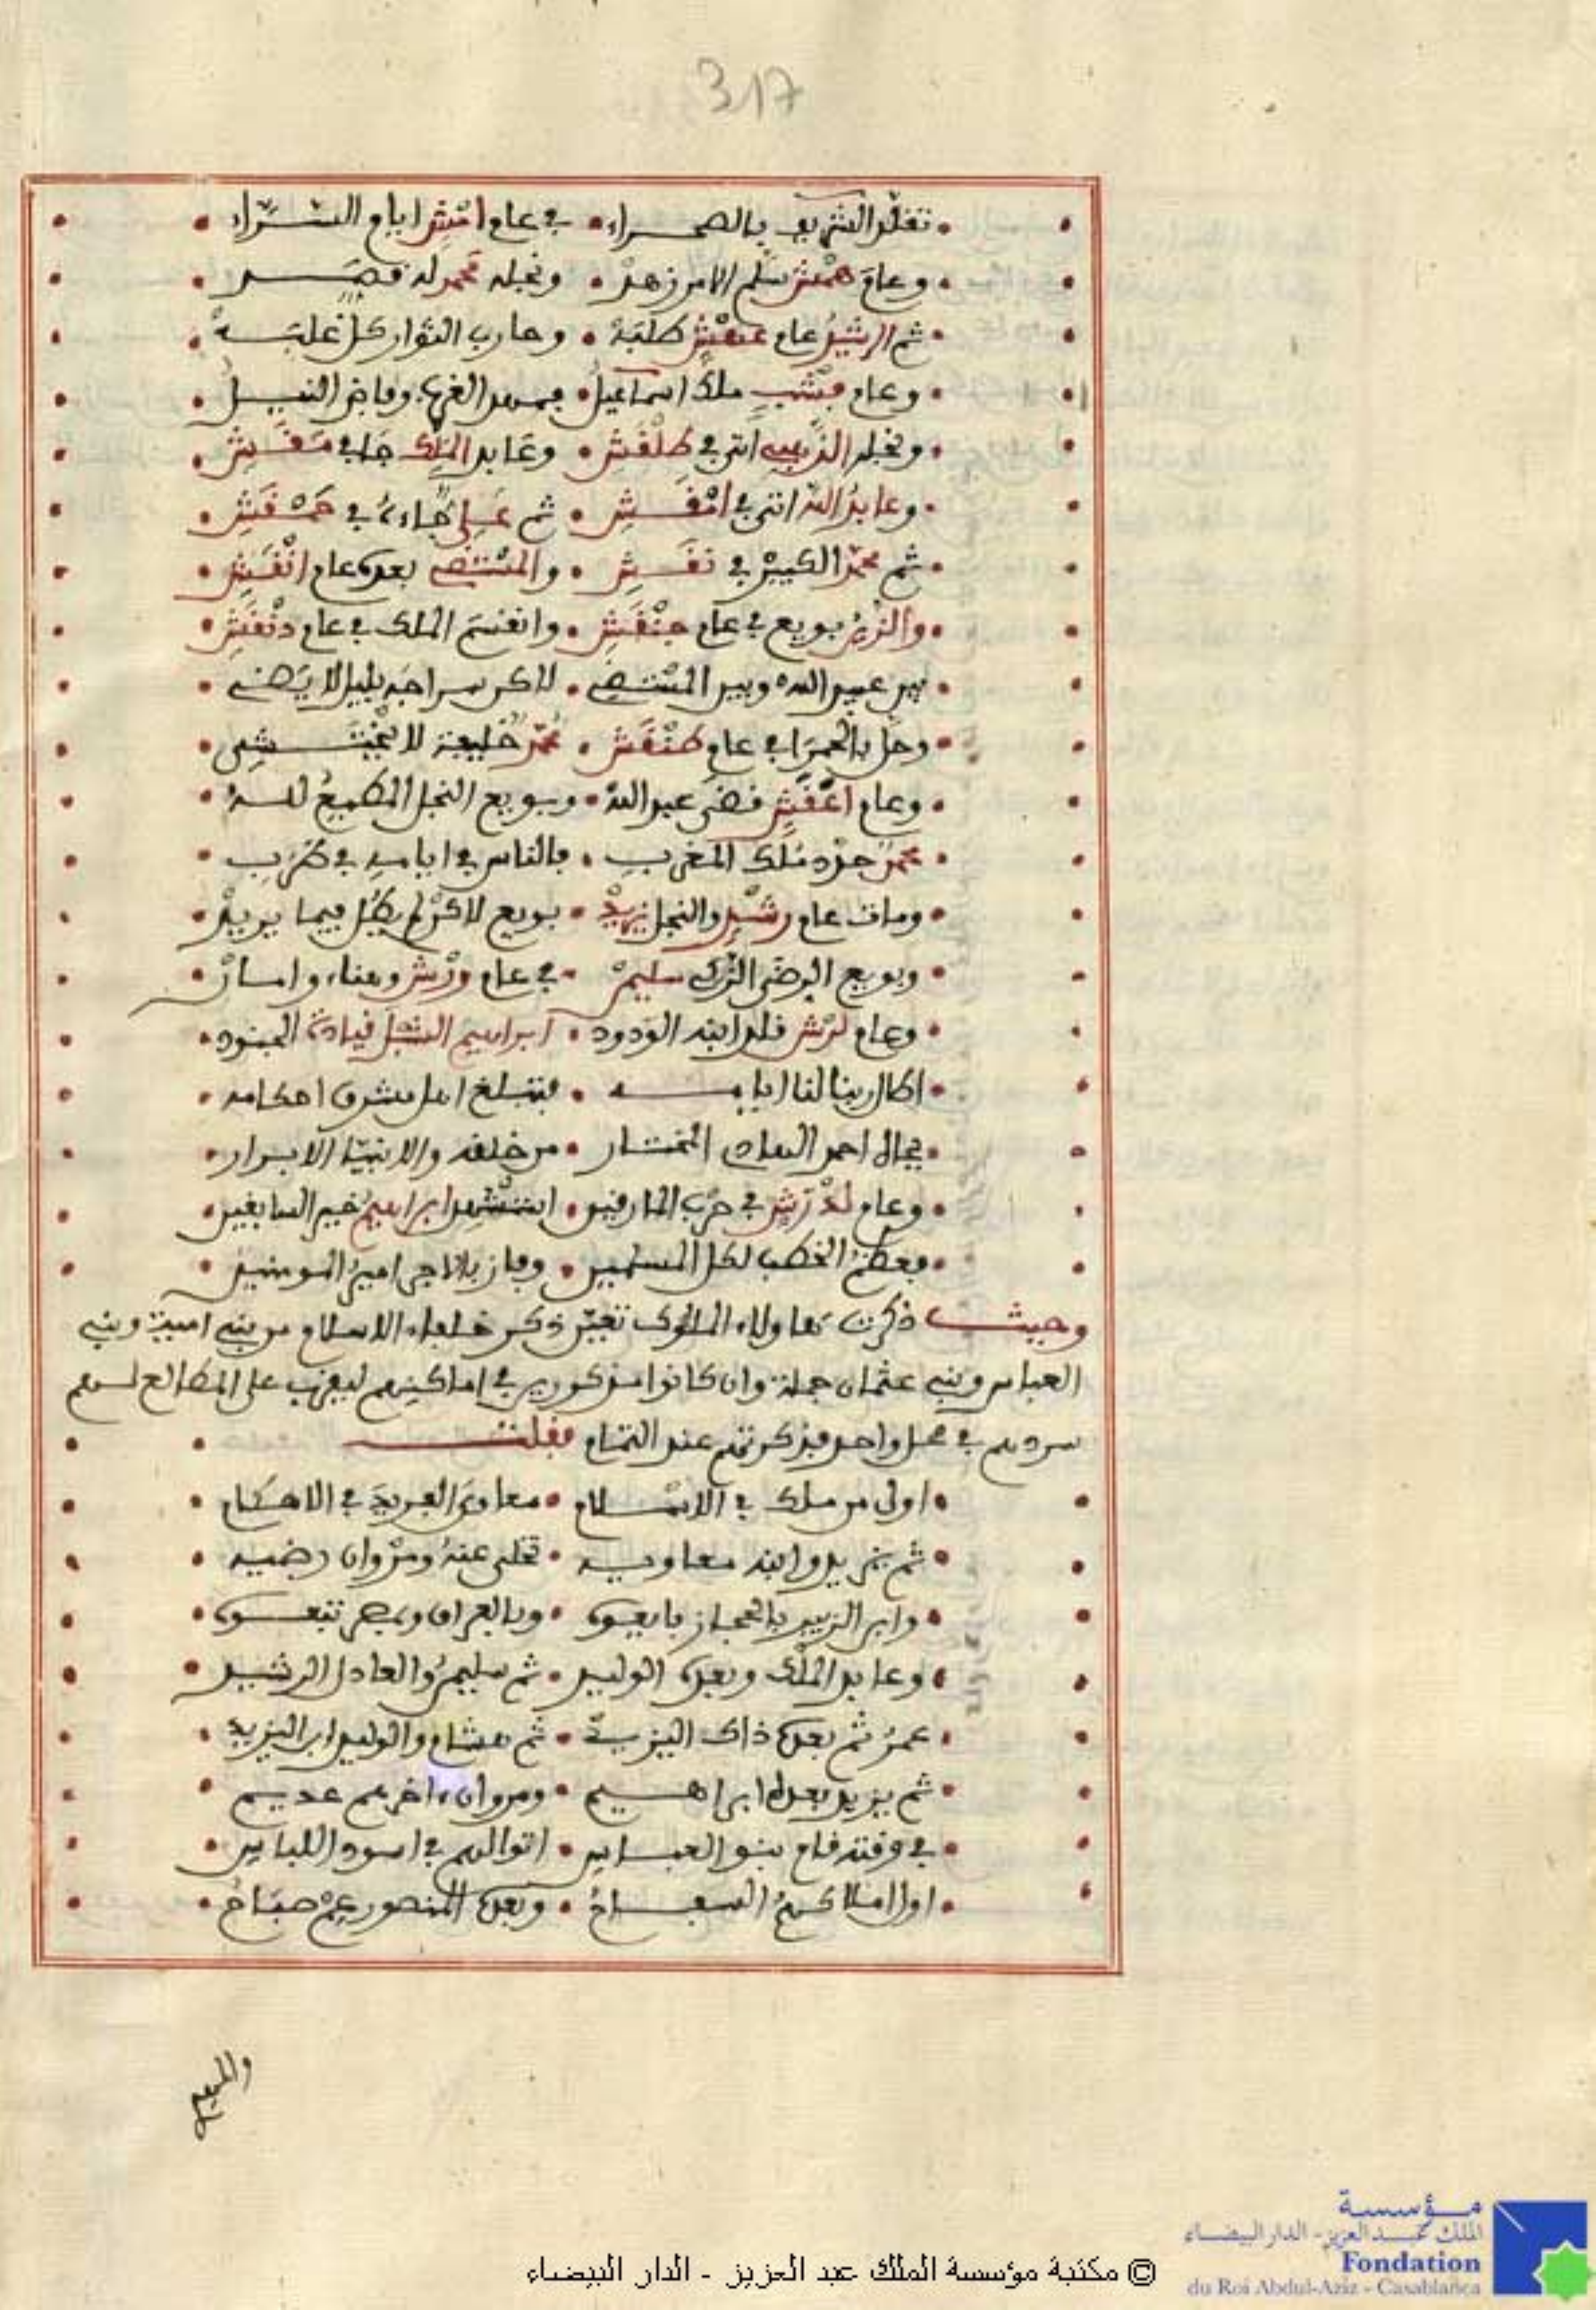 317
تقلد الشريف بالصحراء • في عام امتش ايام السراء
وعام همتش سلم الامر زهد • ونجله محمد له قصد
ثم الرشيد عام عنفش طلبه • وحارب الثوار كل غلبه
وعام ملك اسماعيل • فمهد الغرب وفاض النيل
ونجله الذهبي اتى في طلقش • وعابد الملك جا في مقش
وعابد الله اتى في امقش • ثم علي جاءه في حمقش
ثم محمد الكبير في نقش • والمستضي بعده عام انقش
والزين بويع في عام جنقش • وانقسم الملك في عام دنقش
بين عبد الله وبين المستضي • لاكن سراجه بليل لا يضي
وحل بالحمرا في عام طنقش • محمد خليفة لا يختشي
وعام اعقش قضى عبد الله • وبويع النجل المطيع لله
محمد حزه ملك المغرب • بالناس في ايامه في طرب
ومات عام رشد والنجل يزيد • بويع لاكن لم يطل فيما يريد
وبويع الرضى الزكي سليمن • في عام ورش وهناء وامان
وعام لرش قلد ابنه الودود • ابراهيم الشبل قيادة الجنود
اطال ربنا لنا ايامه • فتبلغ اهل مشرق احكامه
بجاه احمد الهادي المختار • من خلقه والانبيا الابرار
وعام لدرش في حرب المارقين • استشهد ابراهيم خير السابقين
فعظم الخطب لكل المسلمين • وفاز بالاجر امير المومنين
وحيث ذكرت هاولاء الملوك تعين ذكر خلفاء الاسلام من بني امية وبني
العباس وبني عثمان جملة وان كانوا مذكورين في اماكنهم ليقرب على المطالع لهم
سردهم في محل واحد فذكرتهم عند التمام فقلت
اول من ملك في الاسلام • معاوي الفريد في الاحكام
ثم يزيد وابنه معاويه • تخلى عنه ومروان رضيه
وابن الزبير بالحجاز بايعوه • وبالعراق وبمصر تبعوه
وعابد الملك وبعده الوليد • ثم سليمن والعادل الرشيد
عمر ثم بعده ذاك اليزيد • ثم هشام والوليد ابن اليزيد
ثم يزيد بعده ابراهيم • ومروان اخرهم عديم
في وقته قام بنو العباس • اتوا لهم في اسود اللباس
اول املاكهم السفاح • وبعده المنصور عم صباح
مؤسسة
الملك عبد العزيز - الدار البيضاء
Fondation
du Roi Abdul-Aziz - Casablanca
© مكتبة مؤسسة الملك عبد العزيز - الدار البيضاء